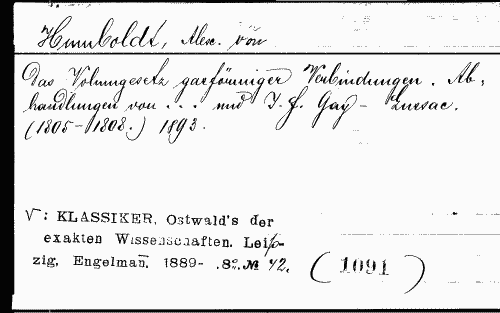 Humboldt, Alex. von
Das Volumgesetz gasförmiger Verbindungen. Ab-
handlungen von ... und J. G. Gay-Lussac.
(1805-1808.) 1893.
V: KLASSIKER, Ostwald's der
exakten Wissenschaften. Leip-
zig, Engelman̅. 1889- .8º. № 42.
(1091)